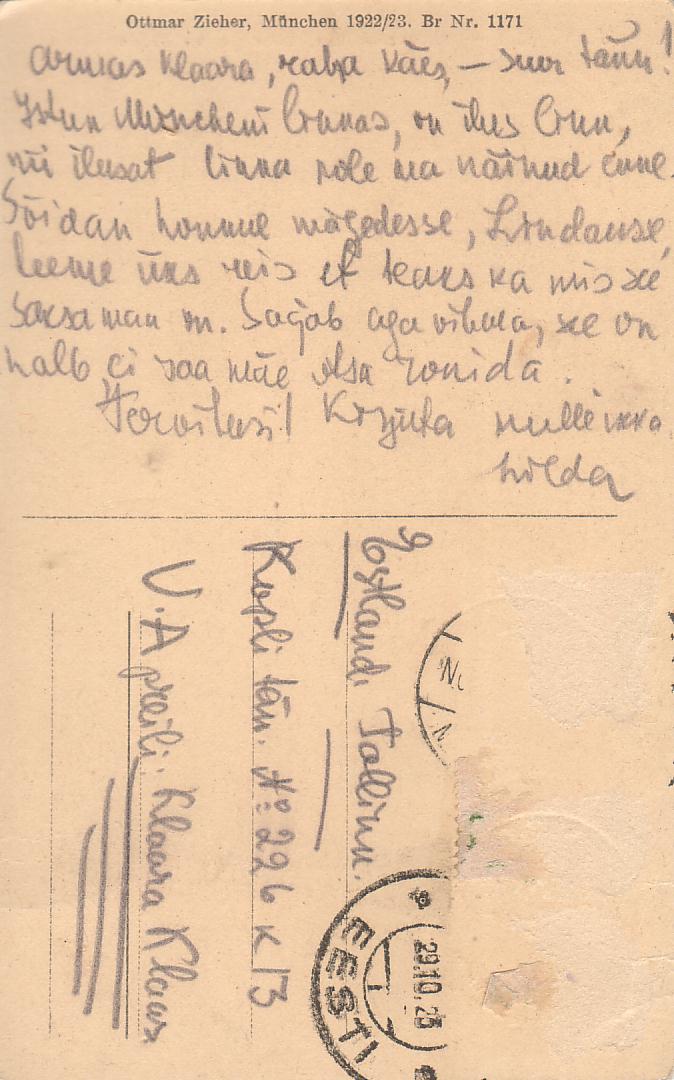 Ottmar Zieher, München 1922/23. Br Nr. 1171
Armas Klaara, raha käes, — suur tänu!
Istun Müncheni linnas, on ilus linn,
nii ilusat linna pole ma näinud enne.
Sõidan homme mägedesse, Lindausse,
teeme üks reis et teaks ka mis see
Saksamaa on. Sajab aga vihma, see on
halb, ei saa mäe otsa ronida.
Tervitusi! Kirjuta mulle ikka.
Hilda
Estland. Tallinn.
Kopli tän. № 29b k 13
V. A preili. Klaara Klaus
EESTI
29.10.23